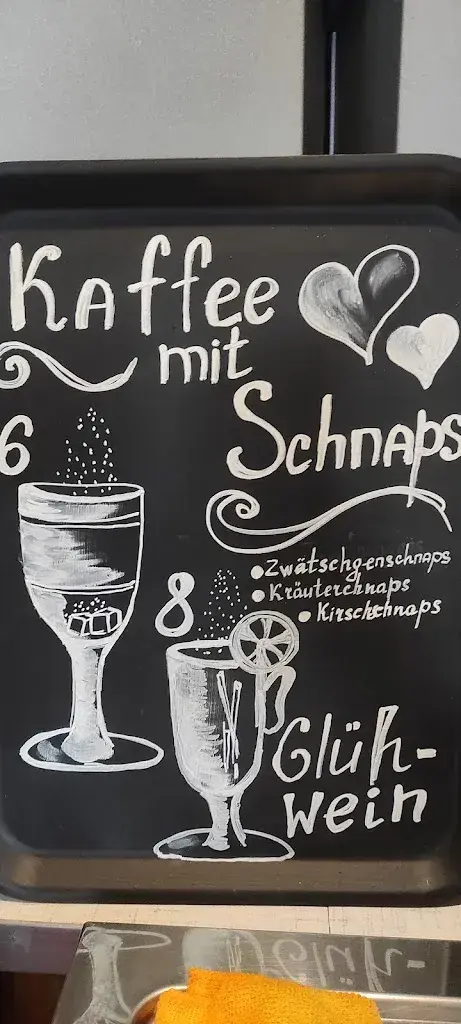 Kaffee
mit
Schnaps
6
• Zwätschgenschnaps
• Kräuterchnaps
• Kirschchnaps
8
Glüh-
wein
Glüh-